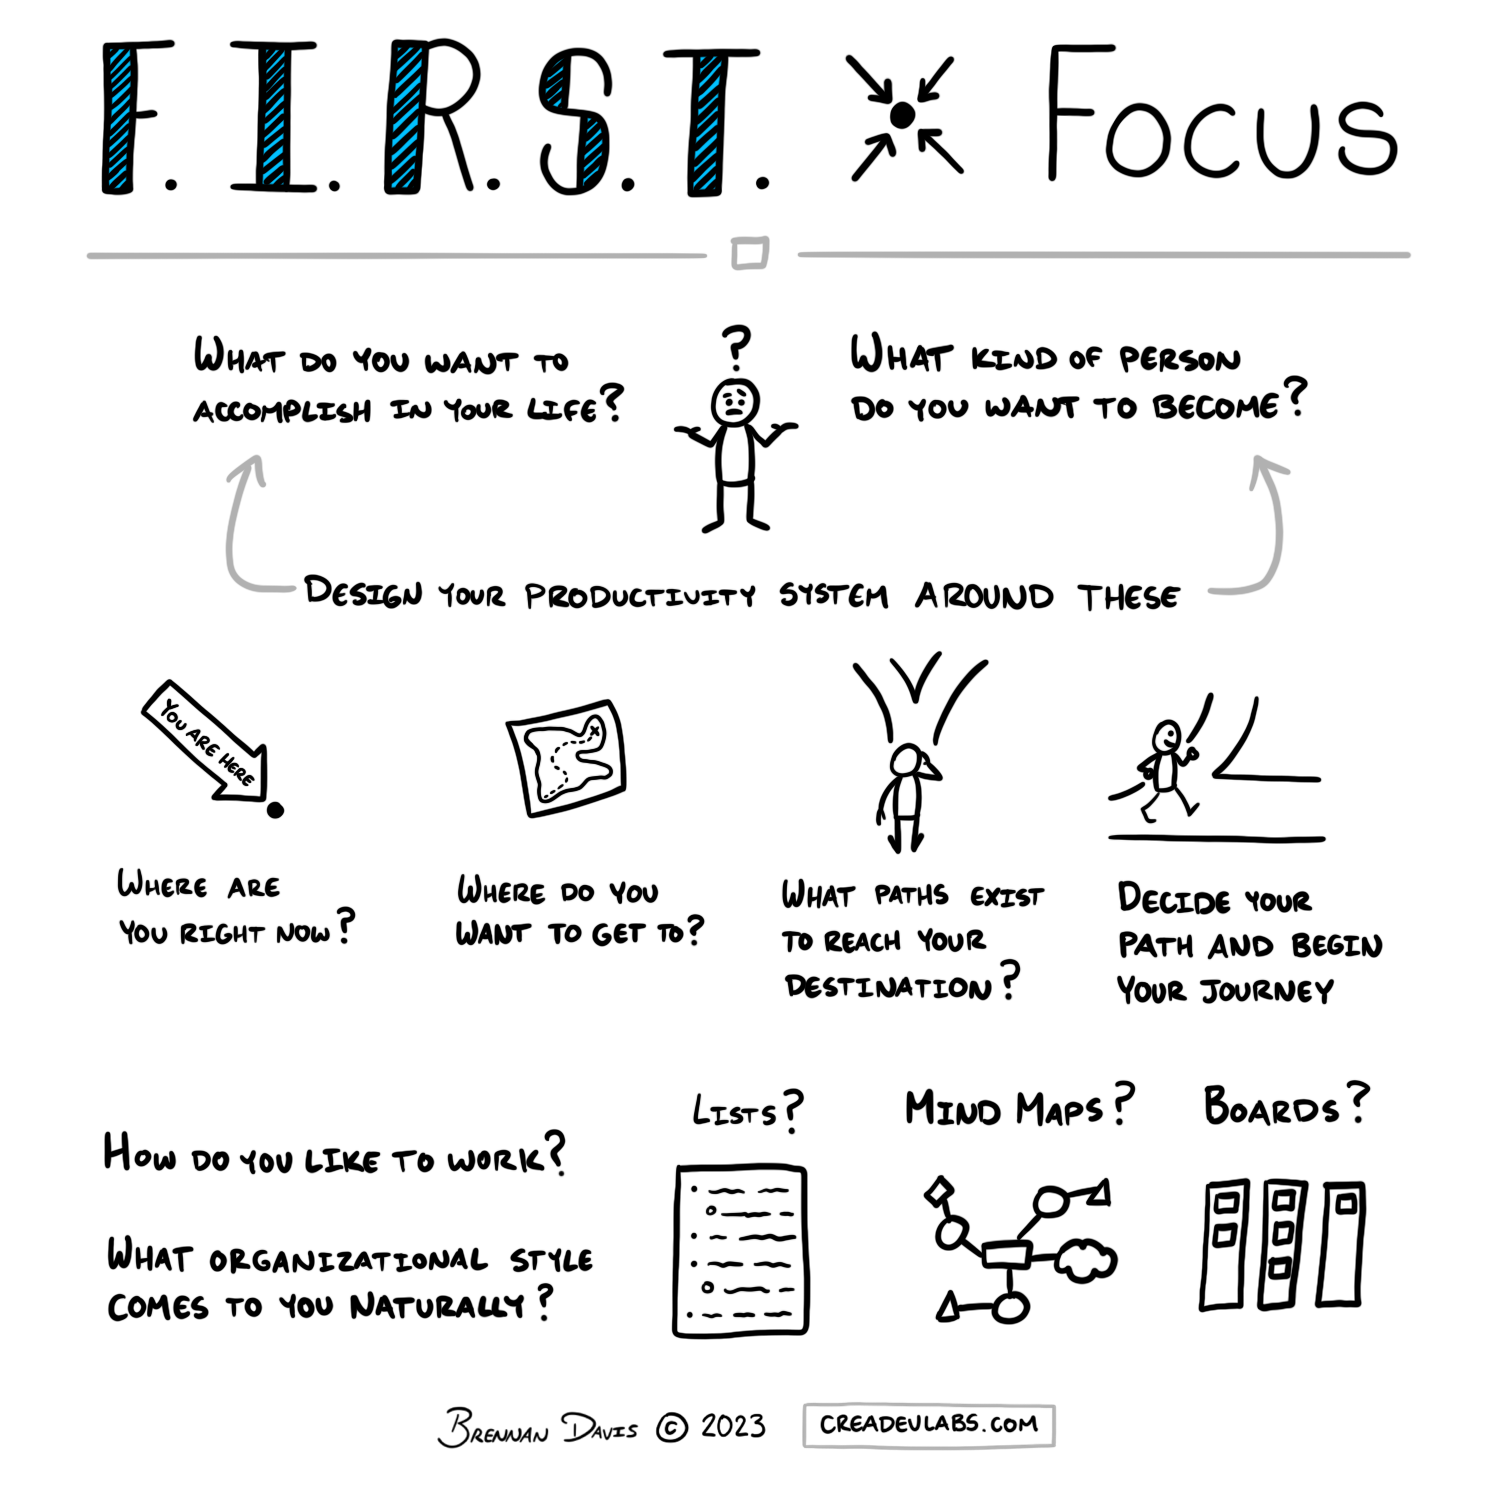 F.I.R.S.T. Focus
What do you want to
accomplish in your life?
?
What kind of person
do you want to become?
Design your productivity system around these
You are here
x
Where are
you right now?
Where do you
want to get to?
What paths exist
to reach your
destination?
Decide your
path and begin
your journey
How do you like to work?
What organizational style
comes to you naturally?
Lists?
Mind Maps?
Boards?
Brennan Davis © 2023
creadevlabs.com